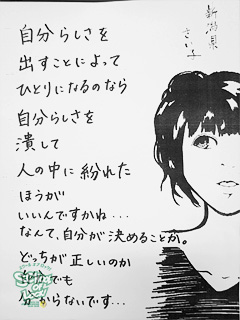 新潟県
さい子
自分らしさを
出すことによって
ひとりになるのなら
自分らしさを
潰して
人の中に紛れた
ほうが
いいんですかね...
なんて、自分が決めることか。
どっちが正しいのか
自分でも
分からないです...